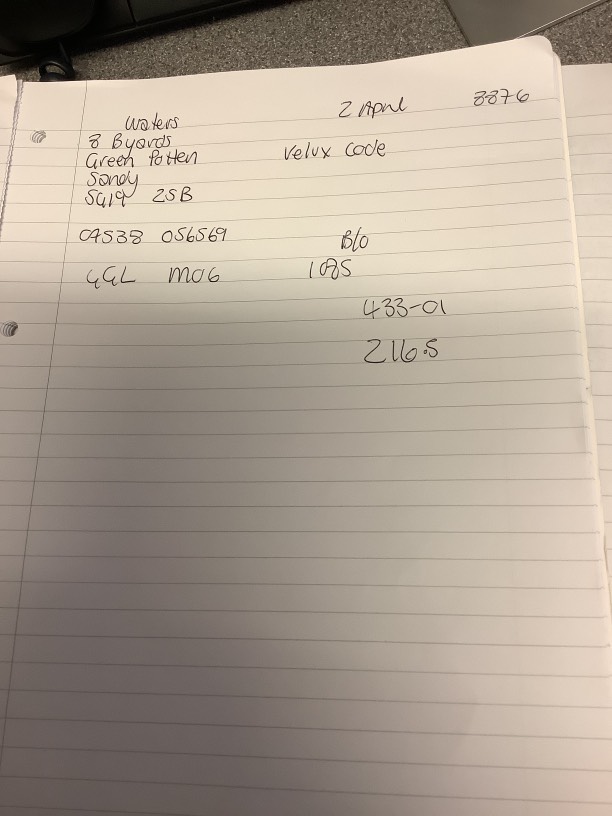 Waters 2 April 8876
8 Byards
Green Potten Velux Code
Sandy
SG19 2SB
07538 056569 B/O
GGL M06 1085
433-01
216.5